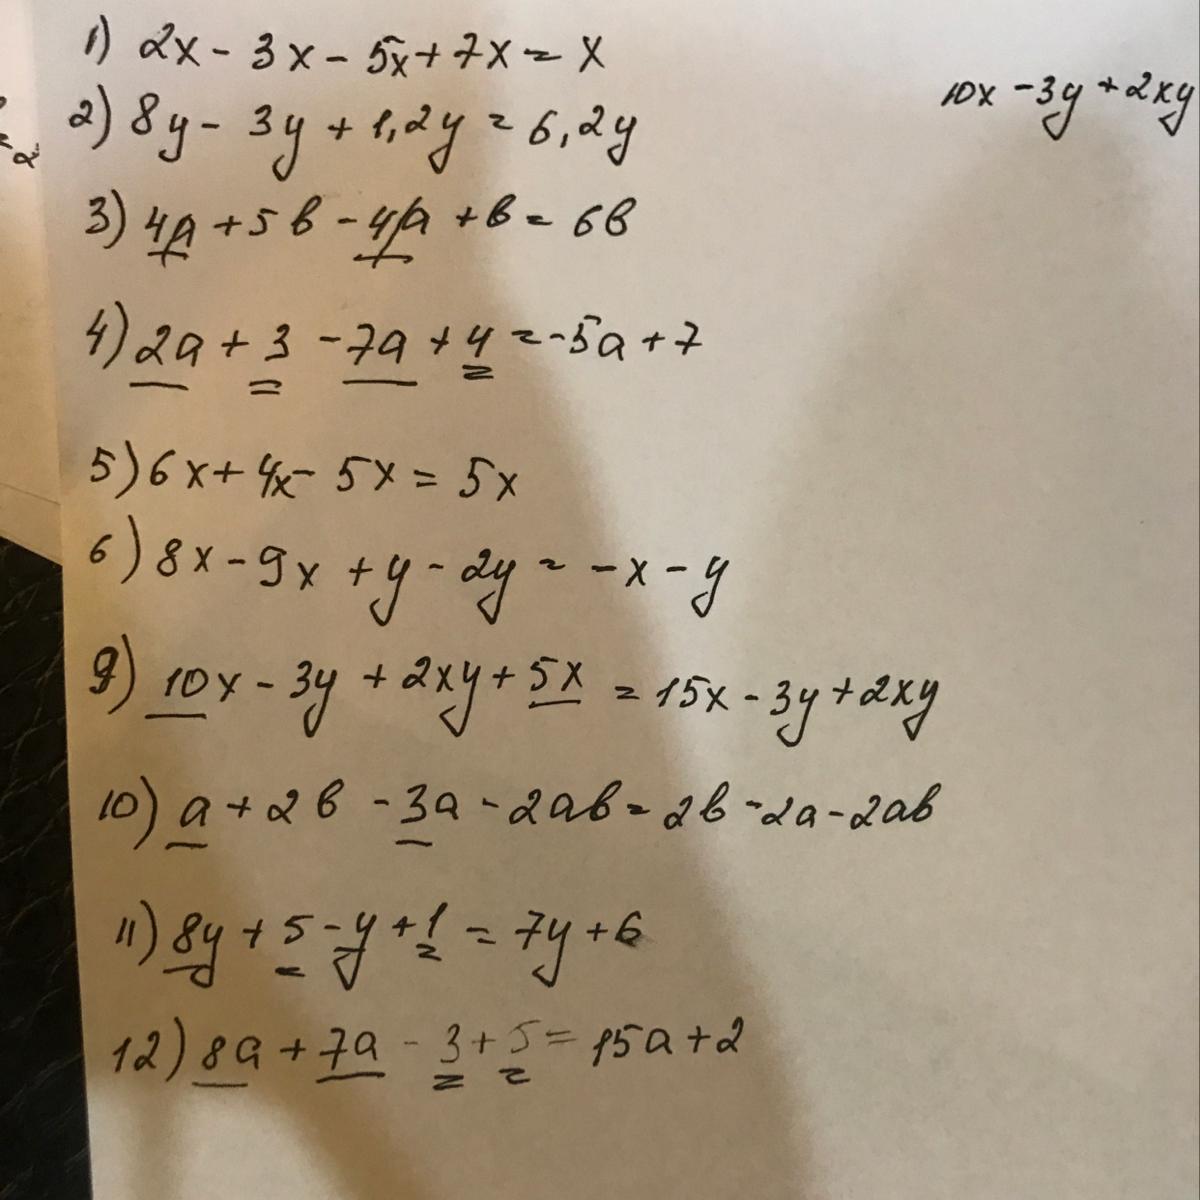 1) 2x - 3x - 5x + 7x = x
10x - 3y + 2xy
2) 8y - 3y + 1,2y = 6,2y
3) 4a + 5b - 4a + b = 6b
4) 2a + 3 - 7a + 4 = -5a + 7
5) 6x + 4x - 5x = 5x
6) 8x - 9x + y - 2y = -x - y
9) 10x - 3y + 2xy + 5x = 15x - 3y + 2xy
10) a + 2b - 3a - 2ab = 2b - 2a - 2ab
11) 8y + 5 - y + 1 = 7y + 6
12) 8a + 7a - 3 + 5 = 15a + 2